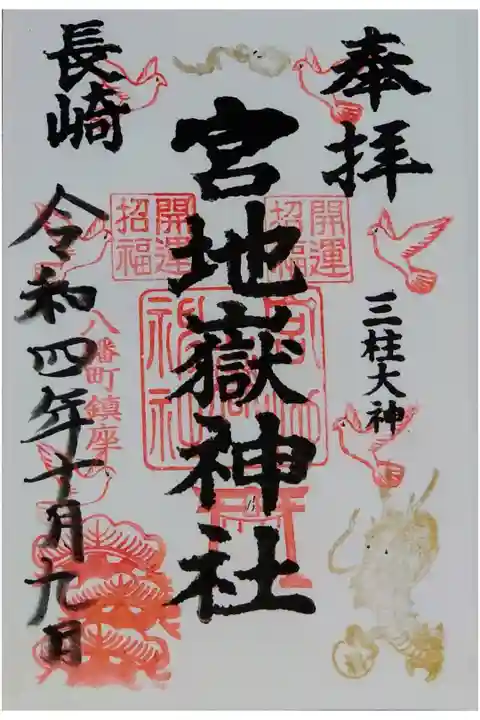 奉拝
三柱大神
開運
招福
宮地嶽神社
宮地嶽
神社
開運
招福
長崎
八幡町鎮座
令和四年十月九日